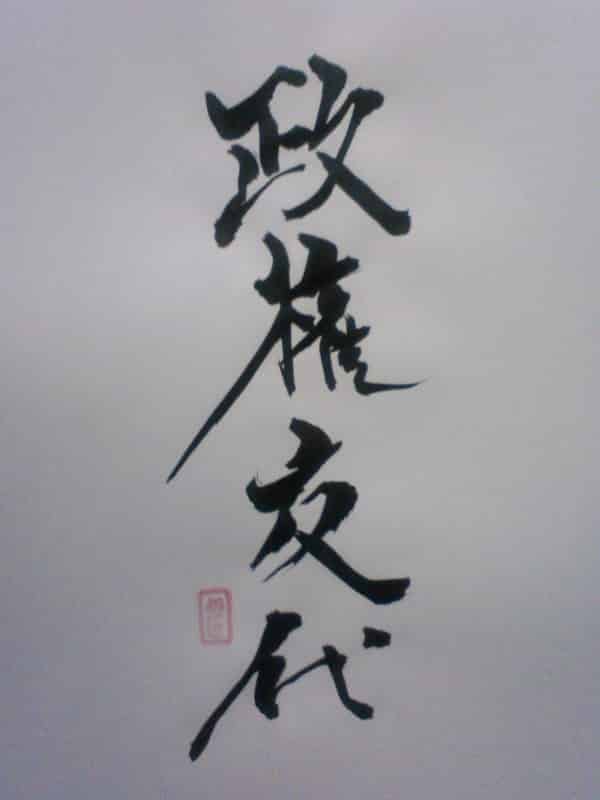 政権交代